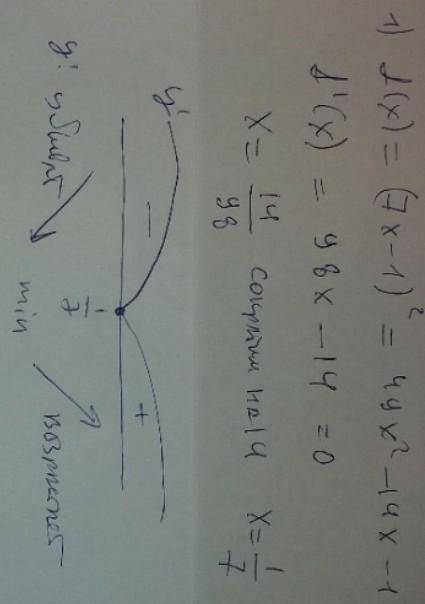 1) f(x) = (7x-1)² = 49x² - 14x - 1
f'(x) = 98x - 14 = 0
x = 14/98 сократим на 14 x = 1/7
y' - +
1/7
y: убывает min возрастает